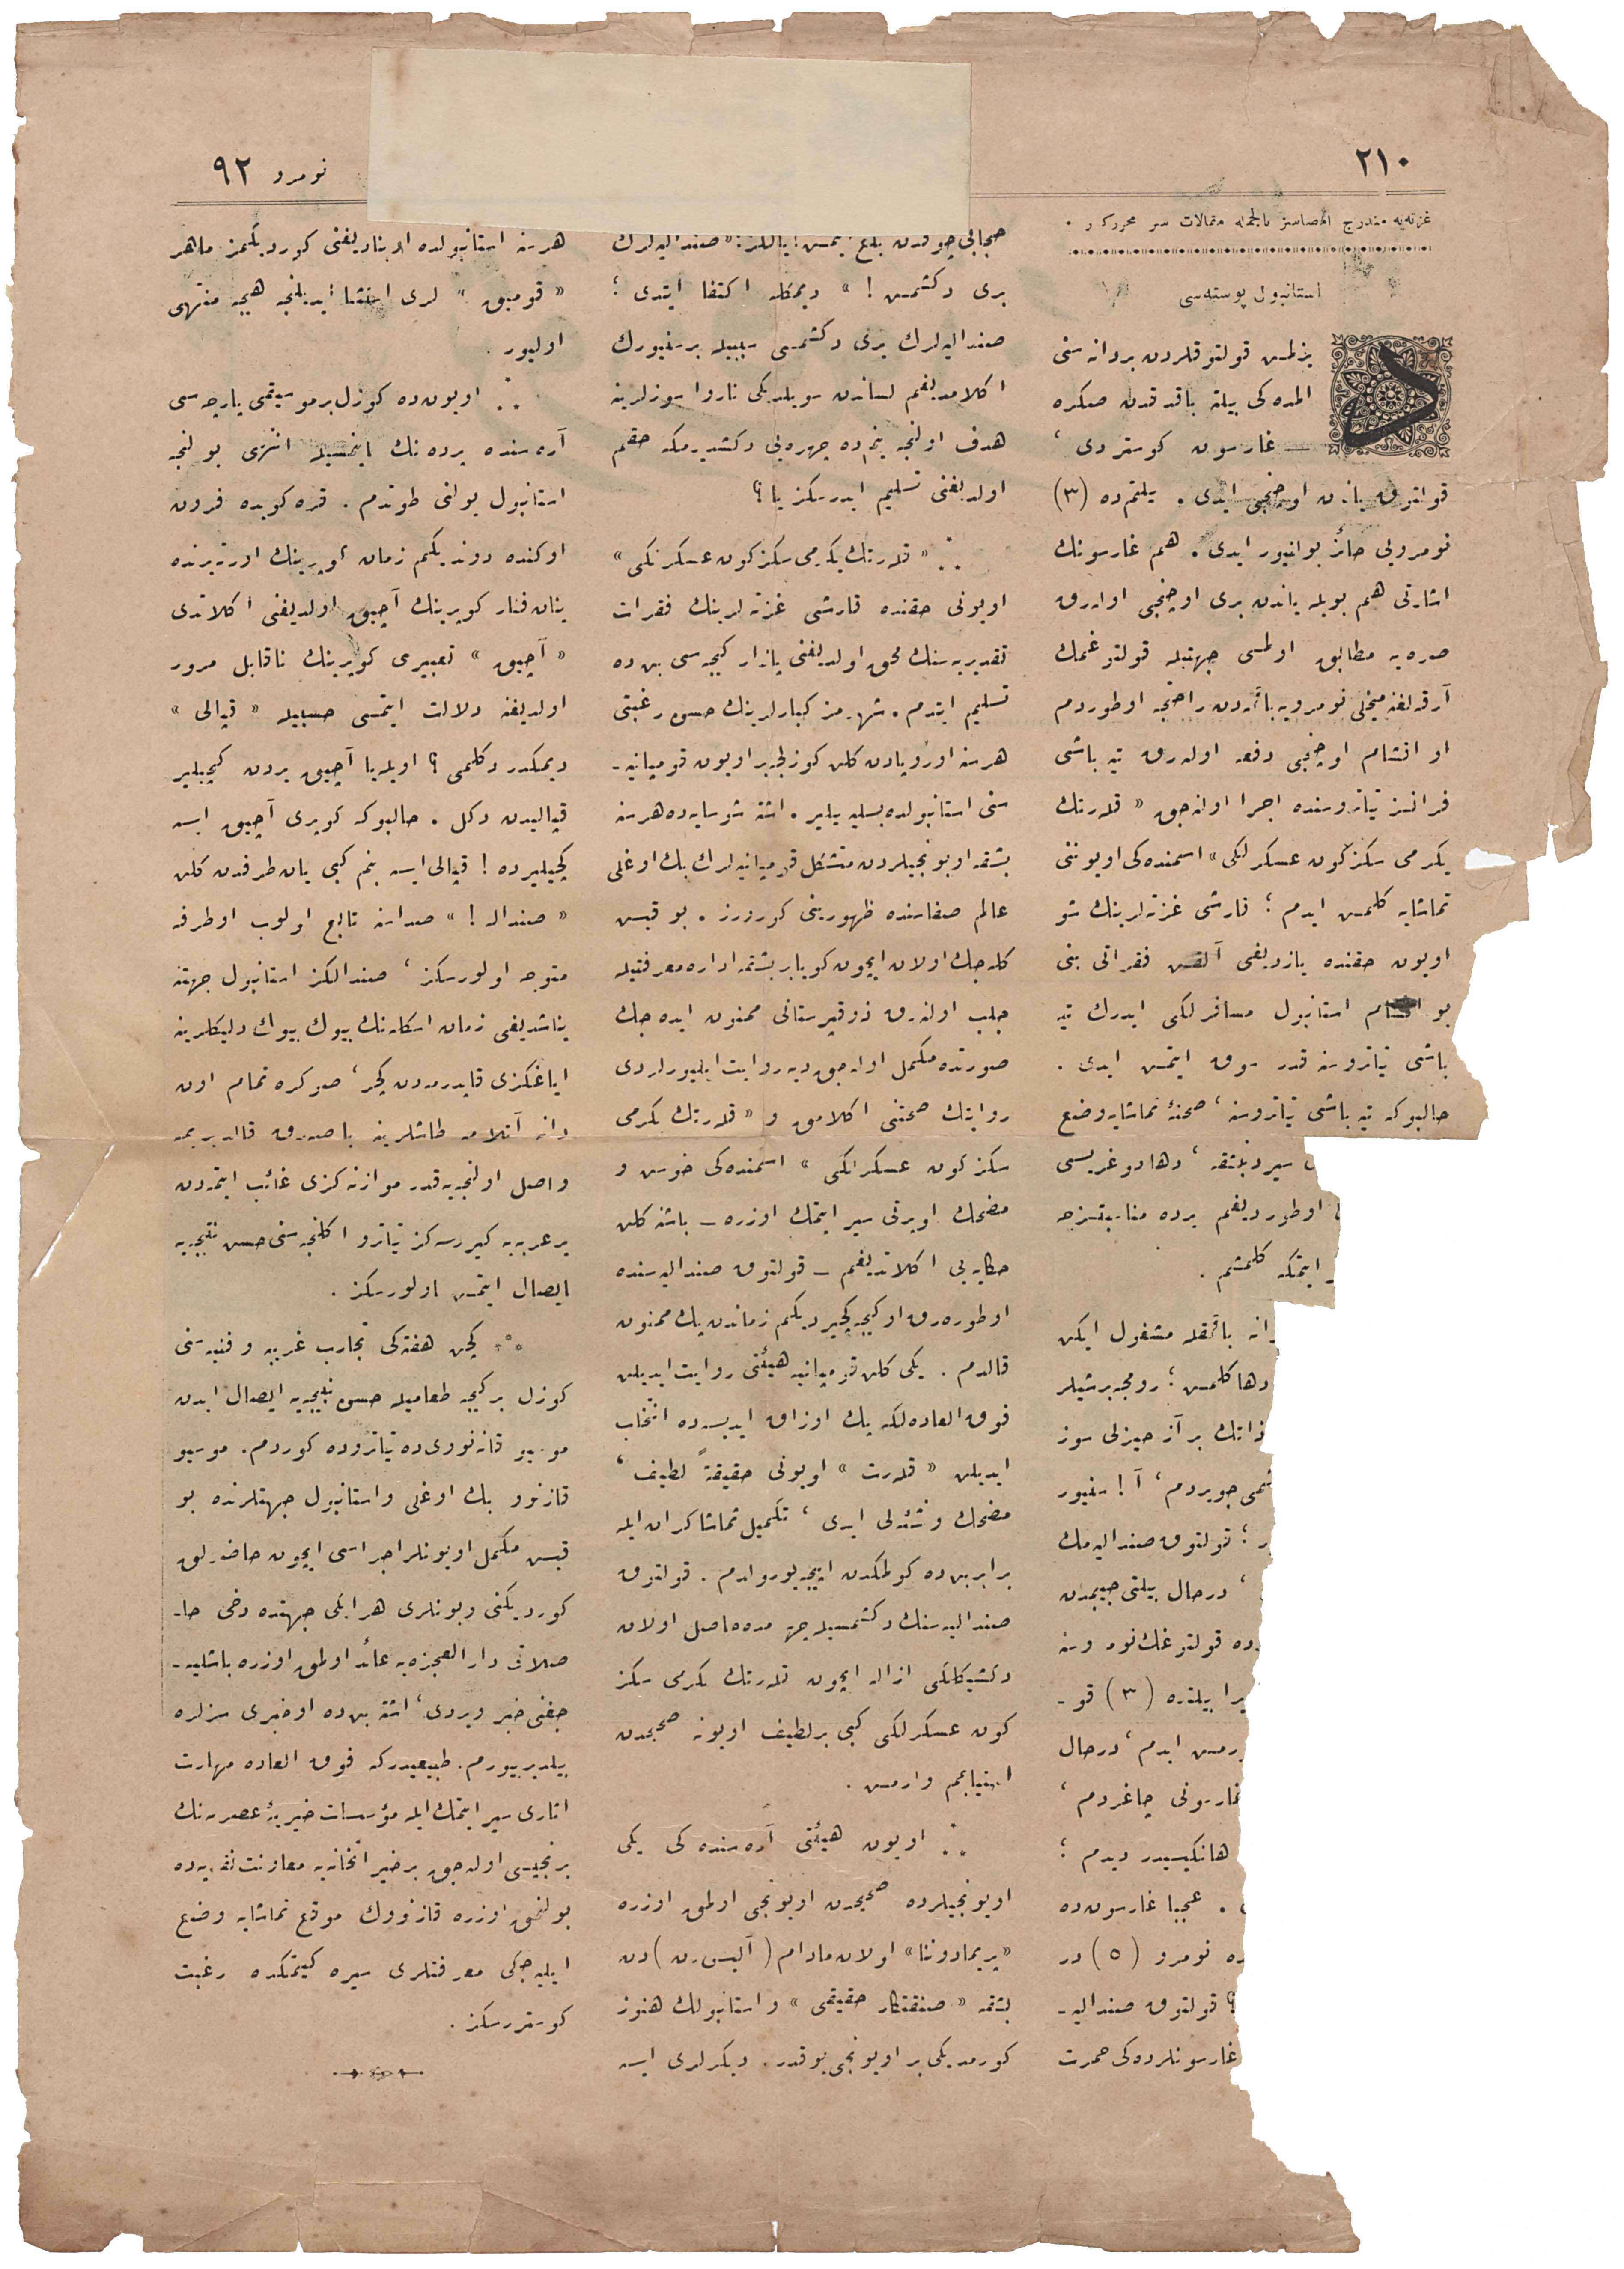 ٢١٠
نومرو ٩٢
غزته‌یه مندرج امضاسز بالجمله مقالات سر محررکدر .
استانبول پوسته‌سی
یزلمش قولتوقلردن بردانه سنی
المده کی بیلته باقدقدن صکره
غارسون کوستردی ،
قولتوق یاندن اوچنجی ایدی . بیلتم‌ده (٣)
نومرویی حائز بولنیور ایدی . هم غارسونك
اشارتی هم بویله یاندن بری اوچنجی اوله‌رق
صره‌یه مطابق اولمسی جهتیله قولتوغمك
آرقه‌لغنه میخلی نومرویه باقمه‌دن راحتجه اوطوردم
او اقشام اوچنجی دفعه اوله‌رق تپه باشی
فرانسز تیاتروسنده اجرا اوله‌جق « قلارتك
یکرمی سکز کون عسکرلکی» اسمنده‌کی اویوننی
تماشایه کلمش ایدم ؛ قارشی غزته لرینك شو
اویون حقنده یازدیغی فقراتی بنی
بو اقشام استانبول مسافرلکی ایدرك تپه
باشی تیاتروسنه قدر سوق ایتمش ایدی .
حالبوکه تپه باشی تیاتروسنه ، صحنۀ تماشایه وضع
سیردن بشقه ، دها دوغریسی
اوطوردیغم یرده مناسبتسزجه
ایتمکه کلمشم .
باقمقله مشغول ایکن
دها کلمش ؛ رومجه برشیلر
ذاتك بر آز حیزلی سوز
چویردم ، آ ! سنیور
؛ قولتوق صندالیه‌مك
، درحال بیلتی جیبمدن
قولتوغك نومروسنه
بیلتده (٣) قو-
ایدم ، درحال
غارسونی چاغردم ،
هانکیسیدر دیدم ؛
. عجبا غارسون‌ده
نومرو (٥) در
؟ قولتوق صندالیه-
غارسونلرده‌کی
صندالیه‌لرك
بری دکشمش ! » دیمکله اکتفا ایتدی ؛
صندالیه‌لرك بری دکشمسی سببیله برسنیورك
اکلامدیغم لساندن سویلدیکی ناروا سوزلرینه
هدف اولنجه بنم‌ده چهره‌یی دکشدیرمکه حقم
اولدیغنی تسلیم ایدرسکز یا ؟
« قلارتك یکرمی سکز کون عسکرلکی »
اویونی حقنده قارشی غزته لرینك فقرات
تقدیریه‌سنك محق اولدیغنی پازار کیجه‌سی بن‌ده
تسلیم ایتدم . شهرمز کبارلرینك حسن رغبتی
هرسنه اوروپادن کلن کوزلجه براویون قومپانیه-
سنی استانبولده بسلیه بیلیر . اشته شو سایه‌ده هرسنه
بشقه اویونجیلردن متشکل قومپانیه‌لرك بك اوغلی
عالم صفاسنده ظهورینی کورورز . بو قیش
کله‌جك اولان ایچون کویا بربشقه اداره معرفتیله
جلب اوله‌رق ذوقپرستانی ممنون ایده‌جك
صورتده مکمل اوله‌جق دیه روایت ایلیورلردی
روایتك صحتنی اکلامق و « قلارتك یکرمی
سکز کون عسکرلکی » اسمنده‌کی خوش و
مضحك اویونی سیر ایتمك اوزره — باشنه کلن
حکایه‌یی اکلاتدیغم — قولتوق صندالیه‌سنده
اوطوره‌رق اوکیجه کچیردیکم زماندن پك ممنون
قالدم . یکی کلن قومپانیه هیئتی روایت ایدیلن
فوق العاده‌لکه پك اوزاق ایدیسه‌ده انتخاب
ایدیلن « قلارت » اویونی حقیقةً لطیف ،
مضحك و نشئه‌لی ایدی ، تکمیل تماشاکران ایله
برابر بن‌ده کولمکدن ایپجه یورولدم . قولتوق
صندالیه‌سنك دکشمسیله چهره‌مده حاصل اولان
دکشیکلکی ازاله ایچون قلارتك یکرمی سکز
کون عسکرلکی کبی بر لطیف اویونه صحیحدن
احتیاجم وارمش .
اویون هیئتی آره‌سنده کی یکی
اویونجیلرده صحیحدن اویونجی اولمق اوزره
«پریمادوننا» اولان مادام ( آلیس رن ) دن
بشقه « صنعتکار حقیقی » و استانبولك هنوز
کورمدیکی بر اویونجی یوقدر . دیکرلری ایسه
هرسنه استانبولده اوینادیغنی کوردیکمز ماهر
« قومیق » لری استثنا ایدیلنجه هیچه منتهی
اولیور .
اویون‌ده کوزل بر موسیقی پارچه‌سی
آره‌سنده پرده‌نك اینمسیله انتهی بولنجه
استانبول یولنی طوتدم . قره‌کویده فرون
اوکنده دوندیکم زمان کوپرینك اورته‌یرنده
ینان فنار کوپرینك آچیق اولدیغنی اکلاتدی
« آچیق » تعبیری کوپرینك ناقابل مرور
اولدیغنه دلالت ایتمسی حسبیله « قپالی »
دیمکدر دکلمی ؟ اویله‌یا آچیق یردن کچیلیر
قپالیدن دکل . حالبوکه کوپری آچیق ایسه
کچیلیرده ! قپالی ایسه بنم کبی یان طرفدن کلن
« صندال ! » صداسنه تابع اولوب اوطرفه
متوجه اولورسکز ، صندالکز استانبول جهتنه
یناشدیغی زمان اسکله‌نك بیوك بیوك دلیکلرینه
ایاغکزی قایدرمه‌دن کچر ، صوکره تمام اون
دانه آتلامه طاشلرینه باصه‌رق قالدیریمه
واصل اولنجه‌یه قدر موازنه‌کزی غائب ایتمه‌دن
بر عربه‌یه کیررسه‌کز تیاترو اکلنجه‌سنی حسن نتیجه‌یه
ایصال ایتمش اولورسکز .
کچن هفته‌کی تجارب غریبه و فنیه‌سنی
کوزل بر کیجه طعامیله حسن نتیجه‌یه ایصال ایدن
موسیو قازنووی‌ده تیاتروده کوردم . موسیو
قازنوو بك اوغلی و استانبول جهتلرنده بو
قیش مکمل اویونلر اجراسی ایچون حاضرلق
کوردیکنی و بونلری هر ایکی جهتده دخی حا-
صلاتی دار العجزه‌یه عائد اولمق اوزره باشلیه-
جغنی خبر ویردی ، اشته بن‌ده او خبری سزلره
بیلدیرییورم . طبیعیدرکه فوق العاده مهارت
اثاری سیر ایتمك ایله مؤسسات خیریۀ عصریه‌نك
برنجیسی اوله‌جق بر خیراتخانه‌یه معاونت نقدیه‌ده
بولنمق اوزره قازنووك موقع تماشایه وضع
ایلیه‌جکی معرفتلری سیره کیتمکده رغبت
کوستررسکز .